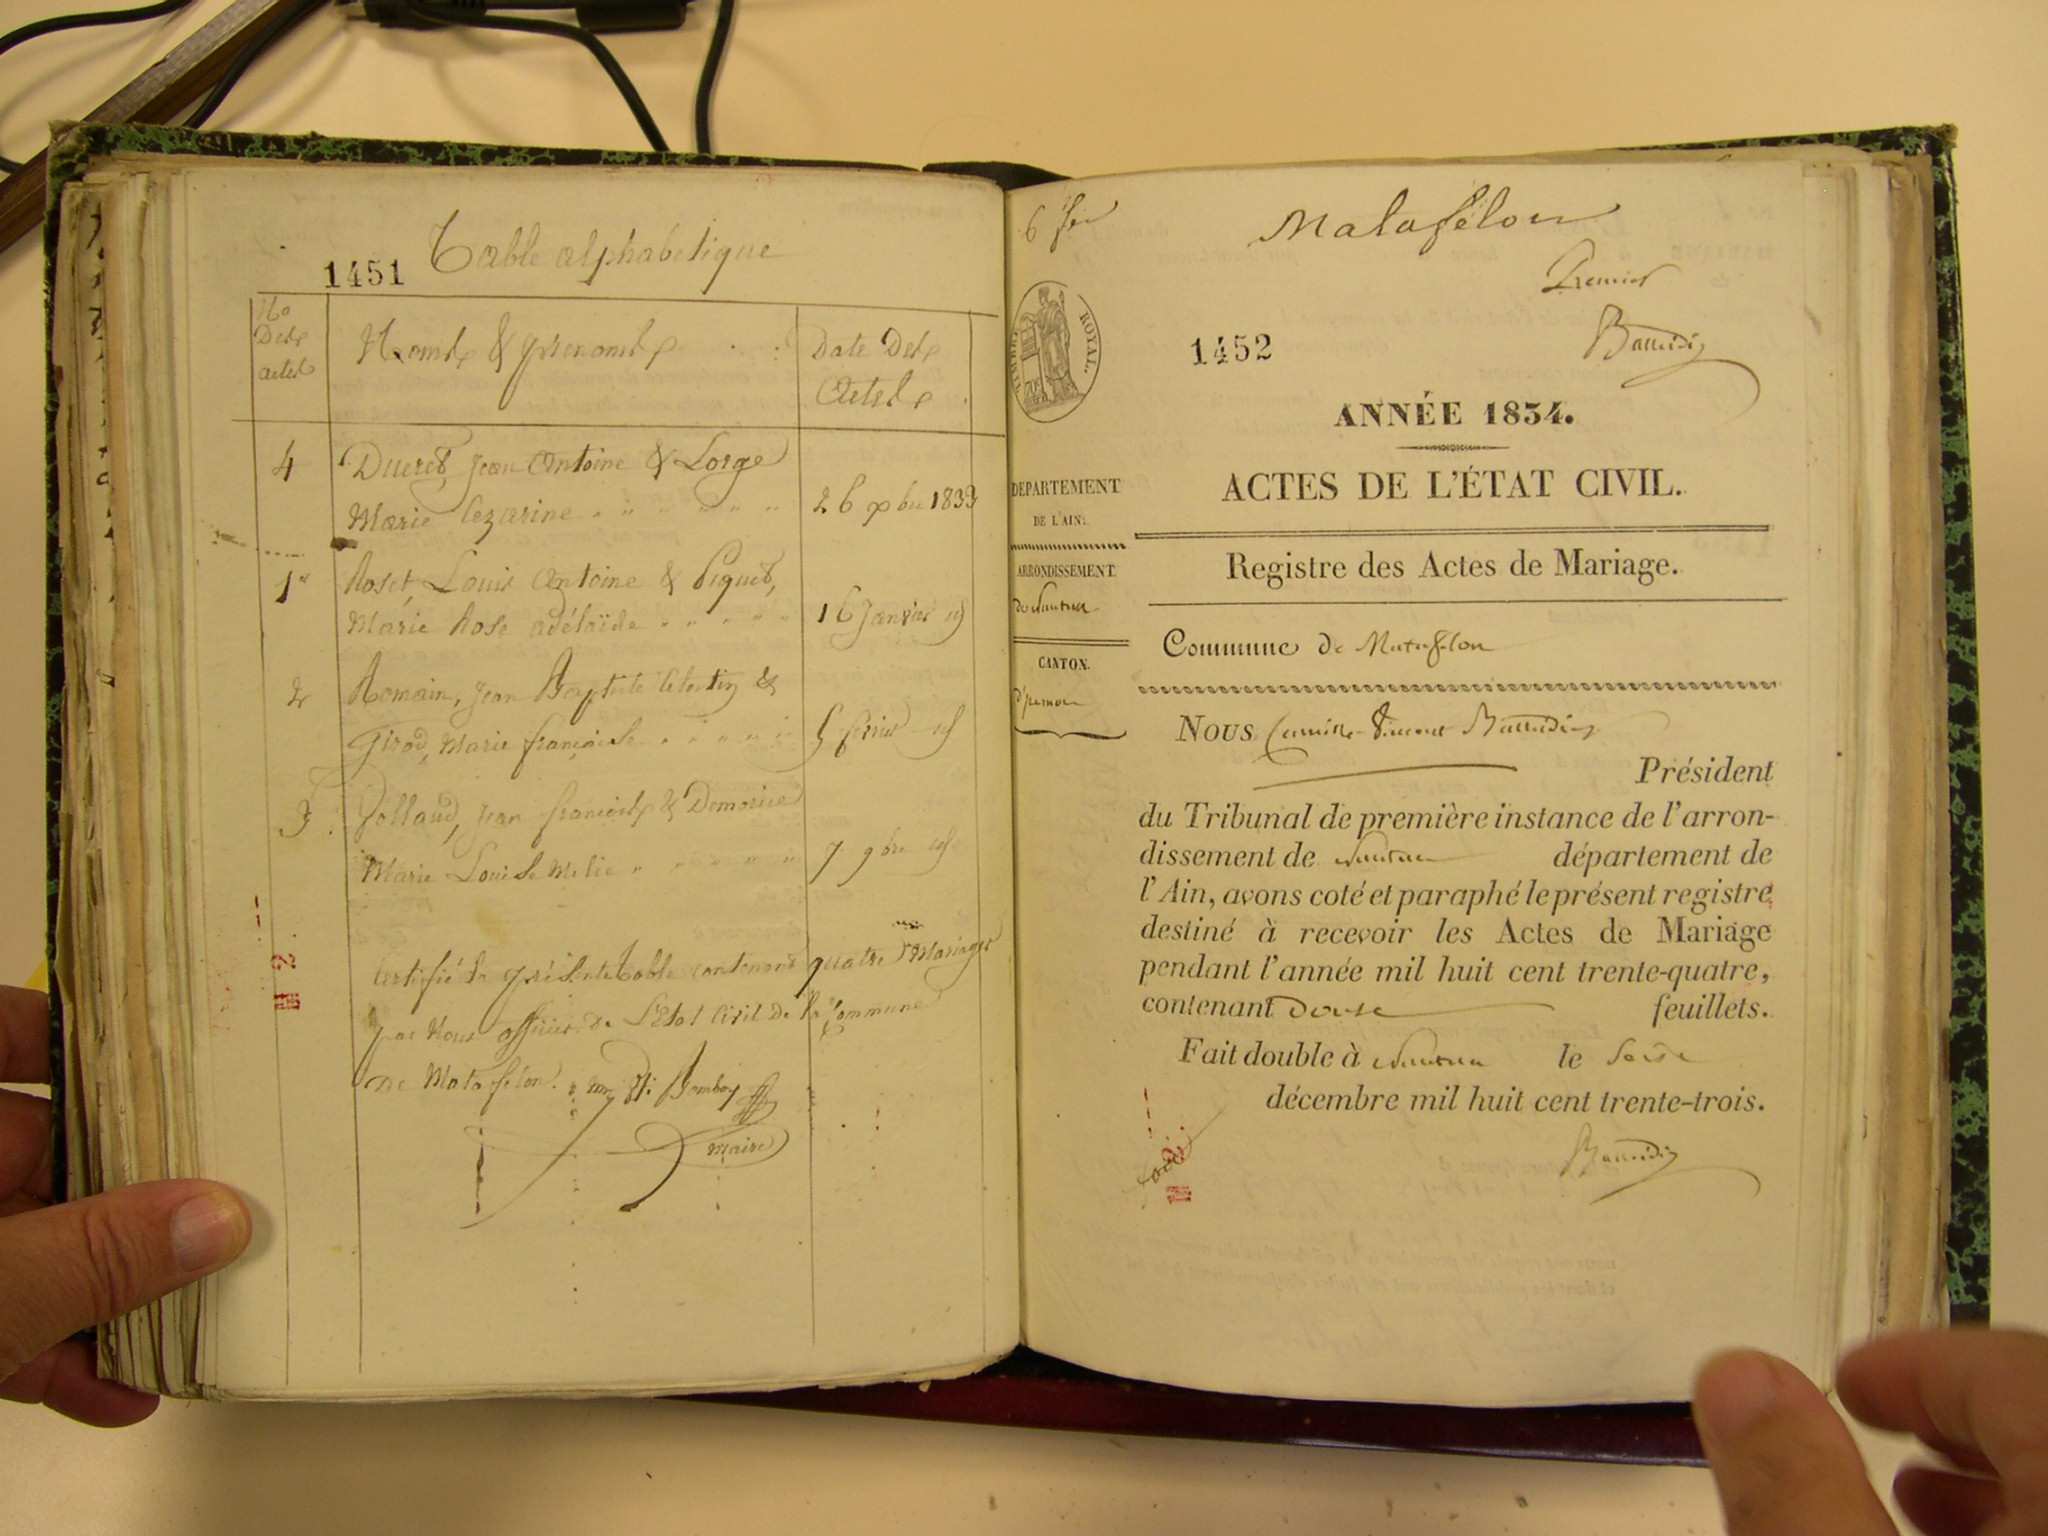 1451
Table alphabetique
No
Des
actes
Noms & prenoms
Date Des
Actes
4
Ducret, Jean Antoine & Lorge
Marie Cezarine " " " " " "
26 xbre 1833
1er
Roset, Louis Antoine & Piquet,
Marie Rose adélaïde " " " " "
16 Janvier id
2
Romain, Jean Baptiste Celestin &
Girod, Marie françoise " " " " "
5 fevrier id
3
Jollaud, Jean françois & Demorice
Marie Louise Melie " " " " " "
7 9bre id
Certifié la présente table contenant quatre Mariages
par Nous officier De L'Etat Civil De la Commune
De Matafelon.
Maire
6 fer
Matafélon
Premier
TIMBRE ROYAL.
1452
ANNÉE 1834.
ACTES DE L'ÉTAT CIVIL.
DEPARTEMENT
DE L'AIN.
Registre des Actes de Mariage.
ARRONDISSEMENT
de Nantua
Commune de Matafelon
CANTON.
Nous Camille Vincent
Président
du Tribunal de première instance de l'arron-
dissement de Nantua département de
l'Ain, avons coté et paraphé le présent registre
destiné à recevoir les Actes de Mariage
pendant l'année mil huit cent trente-quatre,
contenant Douse feuillets.
Fait double à Nantua le Seise
décembre mil huit cent trente-trois.